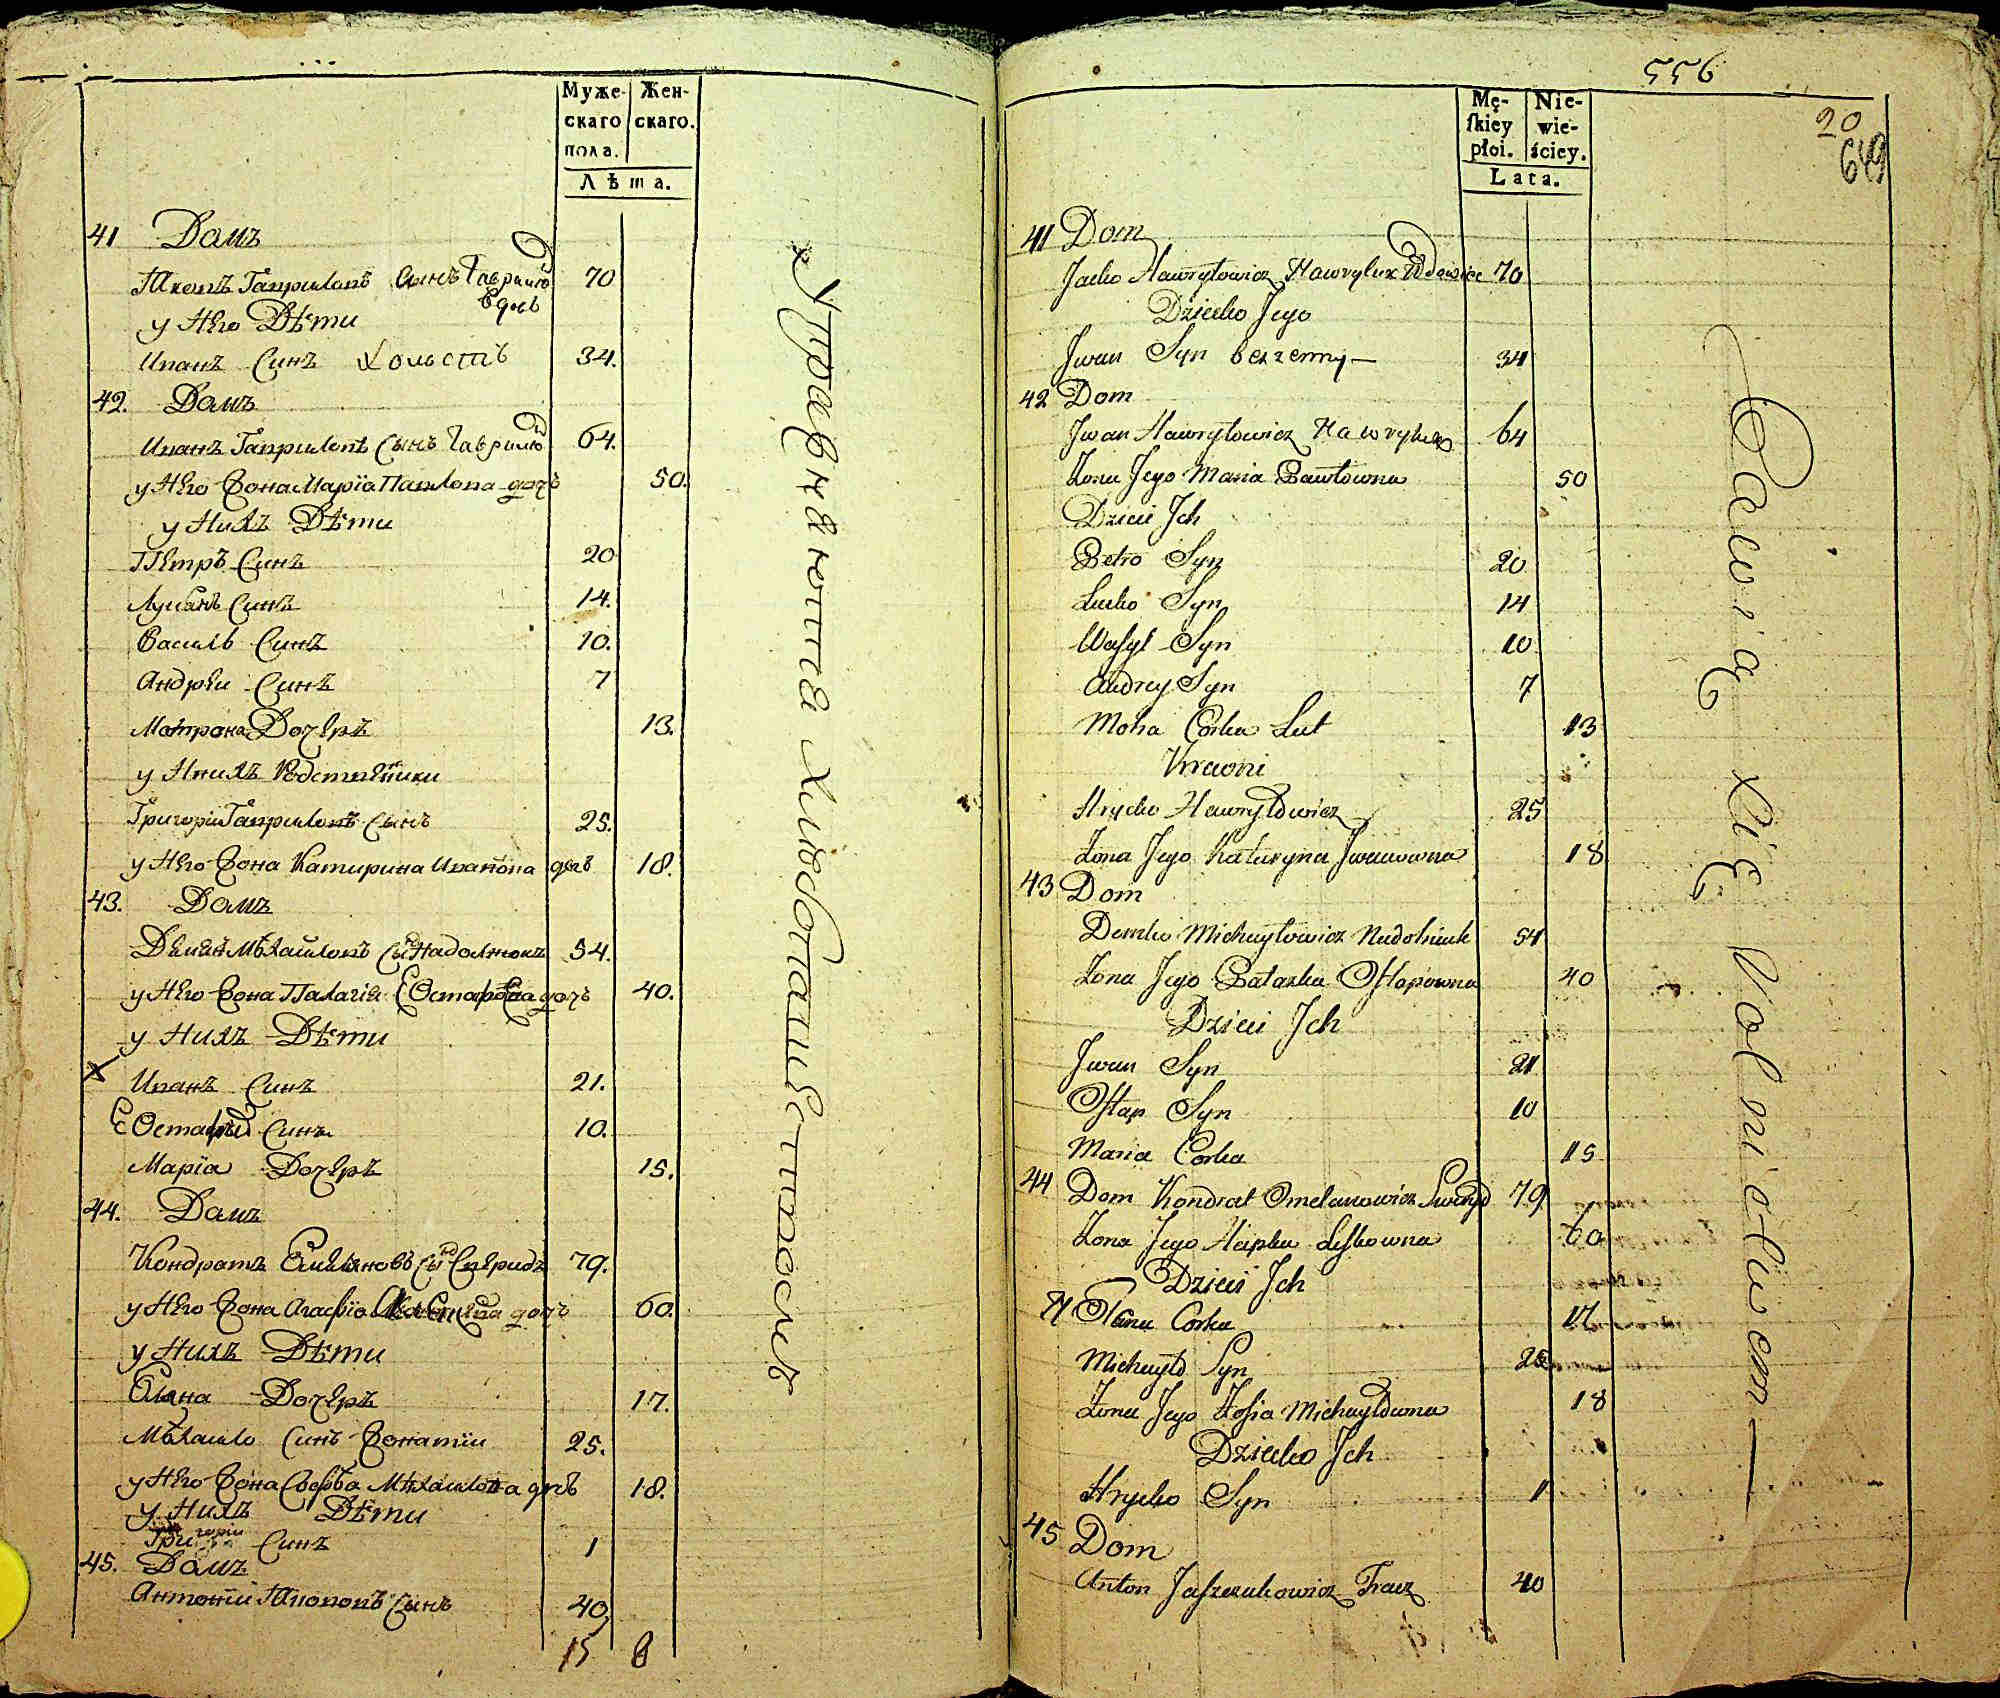 Муже-
скаго
пола.
Жен-
скаго.
Лѣта.
41 Домъ
Яковъ Гавриловъ Сынъ Гаврилюкъ 70
Вдовъ
у Него Дѣти
Иванъ Синъ Холостъ 34.
42. Домъ
Иванъ Гавриловъ Сынъ Гаврилюкъ 64.
у Него Жона Марїа Павлова дочь 50.
у Нихъ Дѣти
Петръ Синъ 20
Лукянъ Синъ 14.
Василь Синъ 10.
Андрей Синъ 7
Мотрона Дочеръ 13.
у Нихъ
Григорій Гавриловъ Сынъ 25.
у Него Жона Катирина Иванова дочь 18.
43. Домъ
Демянъ Михайловъ Сынъ Надолнюкъ 54.
у Него Жона Палагія Єостафіева дочь 40.
у Нихъ Дѣти
Иванъ Синъ 21.
Єостафій Синъ 10.
Марїа Дочеръ 15.
44. Домъ
Кондратъ Омеляновъ Сынъ Свиридъ 79.
у Него Жона Агафїа дочь 60.
у Нихъ Дѣти
Дочеръ 17.
Михайло Синъ Жонатїи 25.
у Него Жона Софїа Михайлова дочь 18.
у Нихъ Дѣти
Григорій Синъ 1
45. Домъ
Антоній Якововъ Сынъ 40
15 8
Управненїе Хлибопашествомъ
556
20
649
Mę-
ſkiey
płoi.
Nie-
wie-
ściey.
Lata.
41 Dom
Jacko Hawryłowicz Hawryluk Wdowiec 70
Dziecko Jego
Jwan Syn bezzenny 34
42 Dom
Jwan Hawryłowicz Hawryluk 64
Żona Jego Maria Pawłowna 50
Dzieci Jch
Petro Syn 20
Lucko Syn 14
Waſyl Syn 10
Andrey Syn 7
Motra Corka Lat 13
Krewni
Hrycko Hawryłowicz 25
Żona Jego Kateryna Jwanowna 18
43 Dom
Demko Michayłowicz Nadolniuk 54
Żona Jego Pałaszka Oſtapowna 40
Dzieci Jch
Jwan Syn 21
Oſtap Syn 10
Maria Corka 15
44 Dom Kondrat Omelanowicz Swiryd 79
Żona Jego Hapka Leſkowna 60
Dzieci Jch
Corka 17
Michayło Syn 25
Żona Jego Zoſia Michayłowna 18
Dziecko Jch
Hrycko Syn 1
45 Dom
Anton Jaſzczukowicz Tkacz 40
Bawią się Rolnictwem